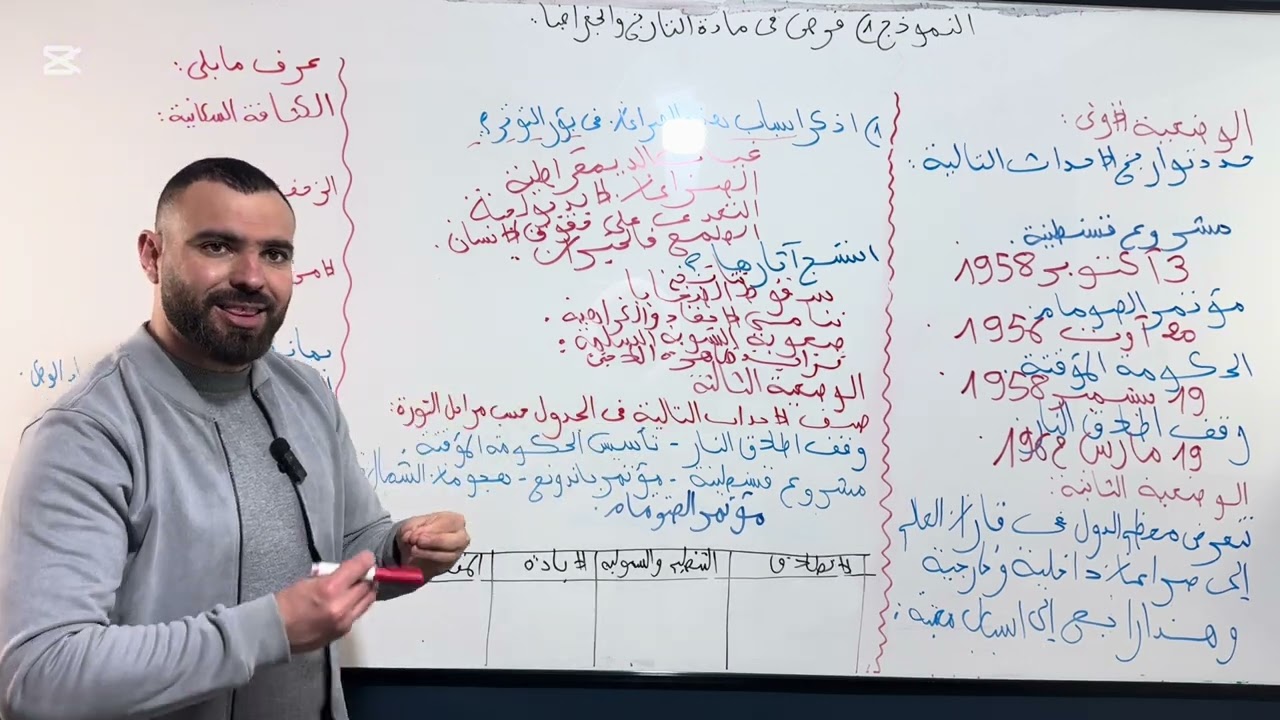 النموذج 1 فرض في مادة التاريخ والجغرافيا:
الوضعية الأولى:
حدد تواريخ الأحداث التالية:
مشروع قسنطينة.
3 أكتوبر 1958
مؤتمر الصومام.
20 أوت 1956
الحكومة المؤقتة.
19 سبتمبر 1958
وقف اطلاق النار
19 مارس 1962
الوضعية الثانية:
تتعرض معظم الدول في قارات العالم
إلى صراعات داخلية وخارجية
وهذا راجع إلى أسباب معينة:
1) اذكر أسباب هذه الصراعات في بؤر التوتر؟
غياب الديمقراطية
الصراعات الايديولوجية
التعدي على حقوق الانسان.
الطمع في الخيرات
استنتج آثارها؟
سقوط الضحايا
تنامي الأحقاد والكراهية.
صعوبة التسوية السلمية:
تزايد ظاهرة
الوضعية الثالثة
صنف الأحداث التالية في الجدول حسب مراحل الثورة:
وقف اطلاق النار - تأسيس الحكومة المؤقتة -
مشروع قسنطينة - مؤتمر باندونغ - هجومات الشمال
مؤتمر الصومام.
الانطلاق التنظيم والشمولية الابادة
عرف مايلي:
الكثافة السكانية: